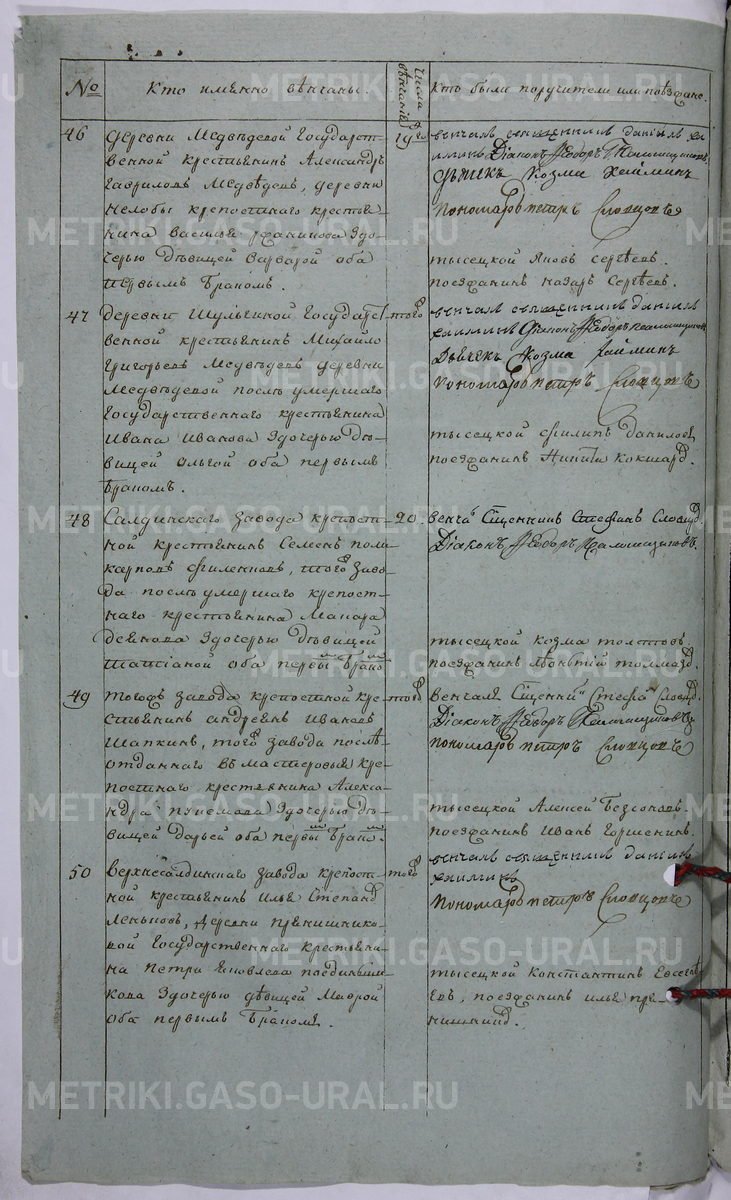 №
Кто именно вѣнчаны.
Числа вѣнчаній
Кто были поручители или поѣзжане.
46
деревни Медвѣдевой Государст-
венной крестьянинъ Александръ
Гавриловъ Медвѣдевъ, деревни
Нелобы крепостнаго крестья-
нина Василья здо-
черью дѣвицей Варварой оба
первымъ бракомъ.
19го
венчалъ священникъ данiилъ ха-
минъ Дiаконъ Ѳеодоръ
Дьячекъ Козма Хаминъ
Пономарь петръ Словцовъ
тысецкой Яковъ Сергѣевъ.
поезжанинъ назаръ Сергѣевъ.
47
деревни Шулѣгиной Государст-
венной крестьянинъ Михайло
Григорьевъ Медвѣдевъ деревни
Медвѣдевой послѣ умершаго
Государственнаго крестьянина
Ивана Иванова здочерью дѣ-
вицей Ольгой оба первымъ
бракомъ.
того
венчалъ священникъ данiилъ
хаминъ Дiаконъ Ѳеодоръ
Дьячекъ Козма Хаминъ
Пономарь петръ Словцовъ
тысецкой Филипъ Даниловъ
поезжанинъ Никита Кокшар.
48
Салдинскаго завода крепост-
ной крестьянинъ Семенъ поли-
карповъ Филенковъ, того заво-
да послѣ умершаго крепост-
наго крестьянина Макара
здочерью дѣвицей
татiаной оба первы брако
20.
венча Сщенникъ Стефанъ Словцо.
Дiаконъ Ѳеодоръ
тысецкой Козма толстовъ.
поезжанинъ толмаз.
49
тогожъ завода крепостной кре-
стьянинъ андреянъ Ивановъ
Шапкинъ, того завода послѣ
отданнаго въ мастеровыя кре-
постнаго крестьянина Алекса-
ндра здочерью дѣ-
вицей дарьей оба первы брако.
того
венчалъ Сщенни Стефа Словцо.
Дiаконъ Ѳеодоръ
Пономарь петръ Словцовъ
тысецкой Алексей Безсоновъ.
поезжанинъ Иванъ Горшенинъ.
50
Верхнесалдинскаго завода крепост-
ной крестьянинъ Илья Степано
Леньковъ, деревни прянишнико-
вой Государственнаго крестьяни-
на Петра Яковлева
здочерью дѣвицей Маврой
оба первымъ бракомъ.
того
венчалъ священникъ данiилъ
хаминъ
Пономарь петръ Словцовъ
тысецкой Константинъ Евсее-
евъ, поезжанинъ илья пря-
нишнико.
METRIKI.GASO-URAL.RU